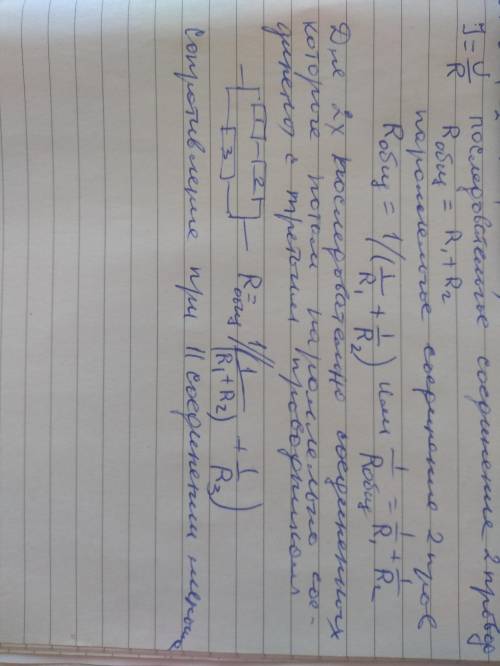 I = U/R последовательное соединение 2 провод
Rобщ = R1 + R2
параллельное соединение 2 пров
Rобщ = 1/(1/R1 + 1/R2) или 1/Rобщ = 1/R1 + 1/R2
Для 2х последовательно соединенных
которые потом параллельно сое-
динены с третьим проводником:
1 2 3 Rобщ = 1/(1/(R1+R2) + 1/R3)
Сопротивление при || соединении меньше